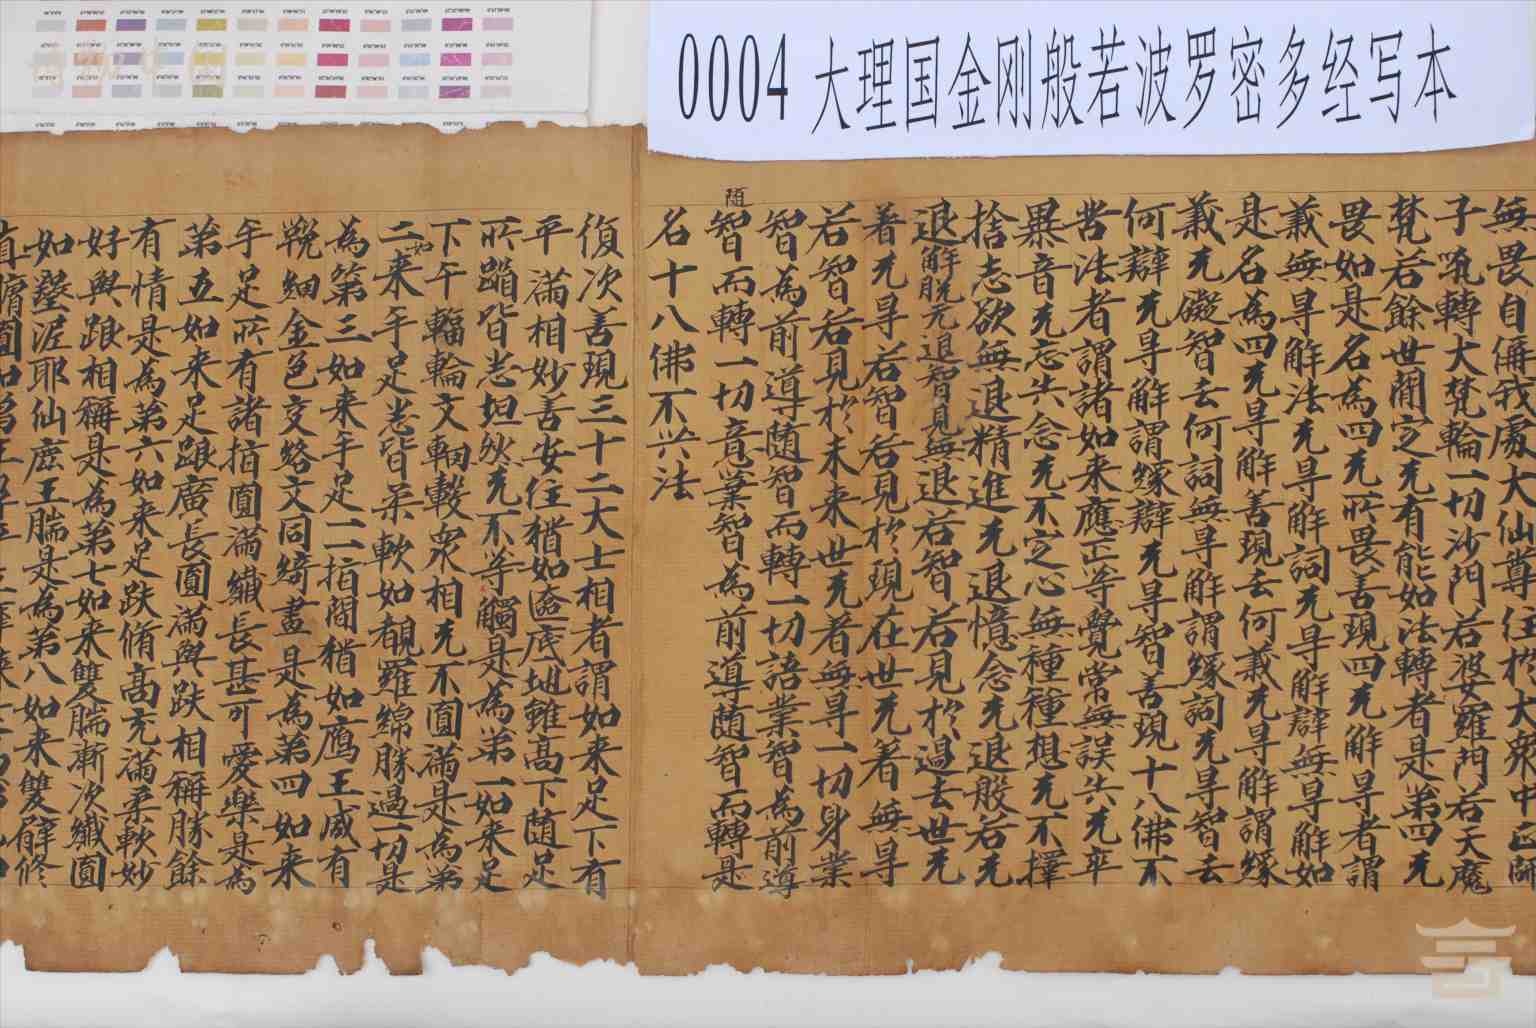 0004 大理国金刚般若波罗密多经写本
無畏自稱我處大仙尊住於大衆中正師
子吼轉大梵輪一切沙門若婆羅門若天魔
梵若餘世閒定无有能如法轉者是第四无
畏如是名為四无所畏善現四无解㝵者謂
義無㝵解法无㝵解詞无㝵解辯無㝵解如
是名為四无㝵解善現云何義无㝵解謂緣
義无礙智云何詞無㝵解謂緣詞无㝵智云
何辯无㝵解謂緣辯无㝵智善現十八佛不
苦法者謂諸如来應正等覺常無誤失无卒
暴音无忘失念无不定心無種種想无不擇
捨志欲無退精進无退憶念无退般若无
退解脫无退智見無退若智若見於過去世无
著无㝵若智若見於現在世无著無㝵
若智若見於未来世无著無㝵一切身業
智為前導随智而轉一切語業智為前導
随智而轉一切意業智為前導随智而轉是
名十八佛不共法
復次善現三十二大士相者謂如来足下有
平滿相妙善安住猶如奩底地雖高下随足
所蹈皆悉坦然无不等觸是為第一如来足
下千輻輪文輞轂衆相无不圓滿是為第
二如来手足悉皆柔軟如覩羅綿勝過一切是
為第三如来手足一二指閒猶如鴈王咸有
鞔網金色交絡文同綺畫是為第四如来
手足所有諸指圓滿纖長甚可愛樂是為
第五如来足跟廣長圓滿與趺相稱勝餘
有情是為第六如来足趺脩高充滿柔軟妙
好與跟相稱是為第七如来雙腨漸次纖圓
如瑿泥耶仙鹿王腨是為第八如来雙臂修